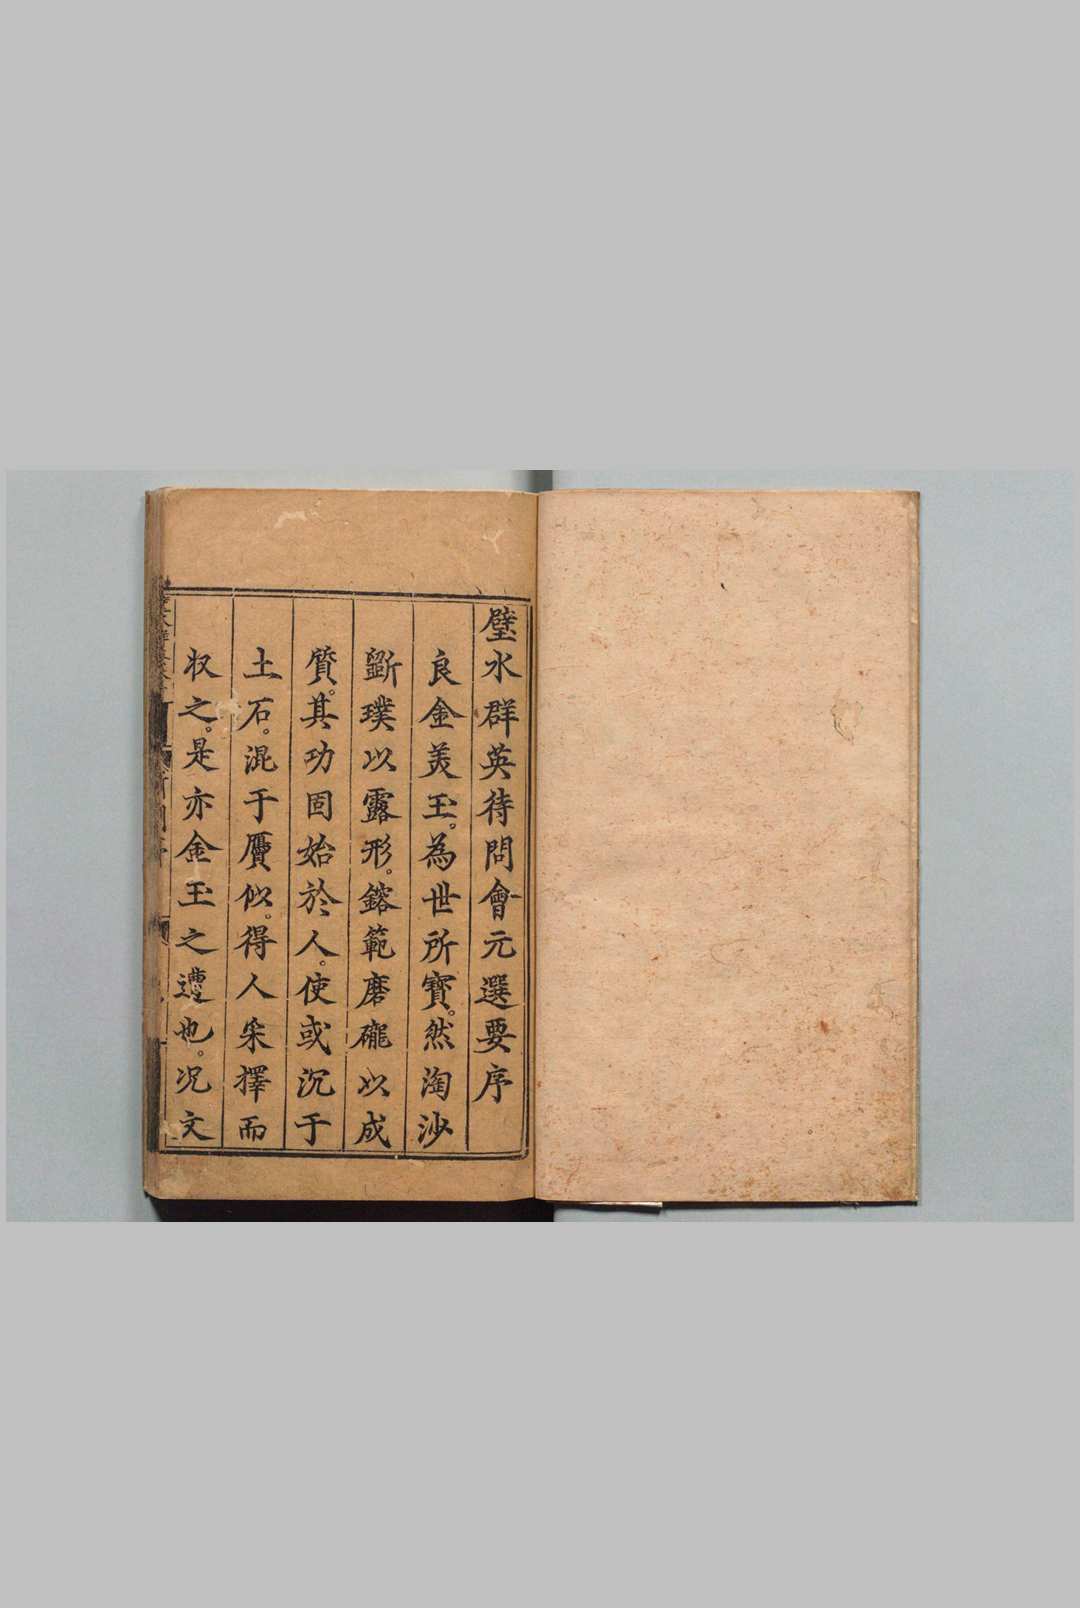 璧水群英待問會元選要序
良金美玉。為世所寶。然淘沙
斵璞以露形。鎔範磨礲以成
質。其功固始於人。使或沉于
土石。混于贋似。得人采擇而
収之。是亦金玉之遭也。况文